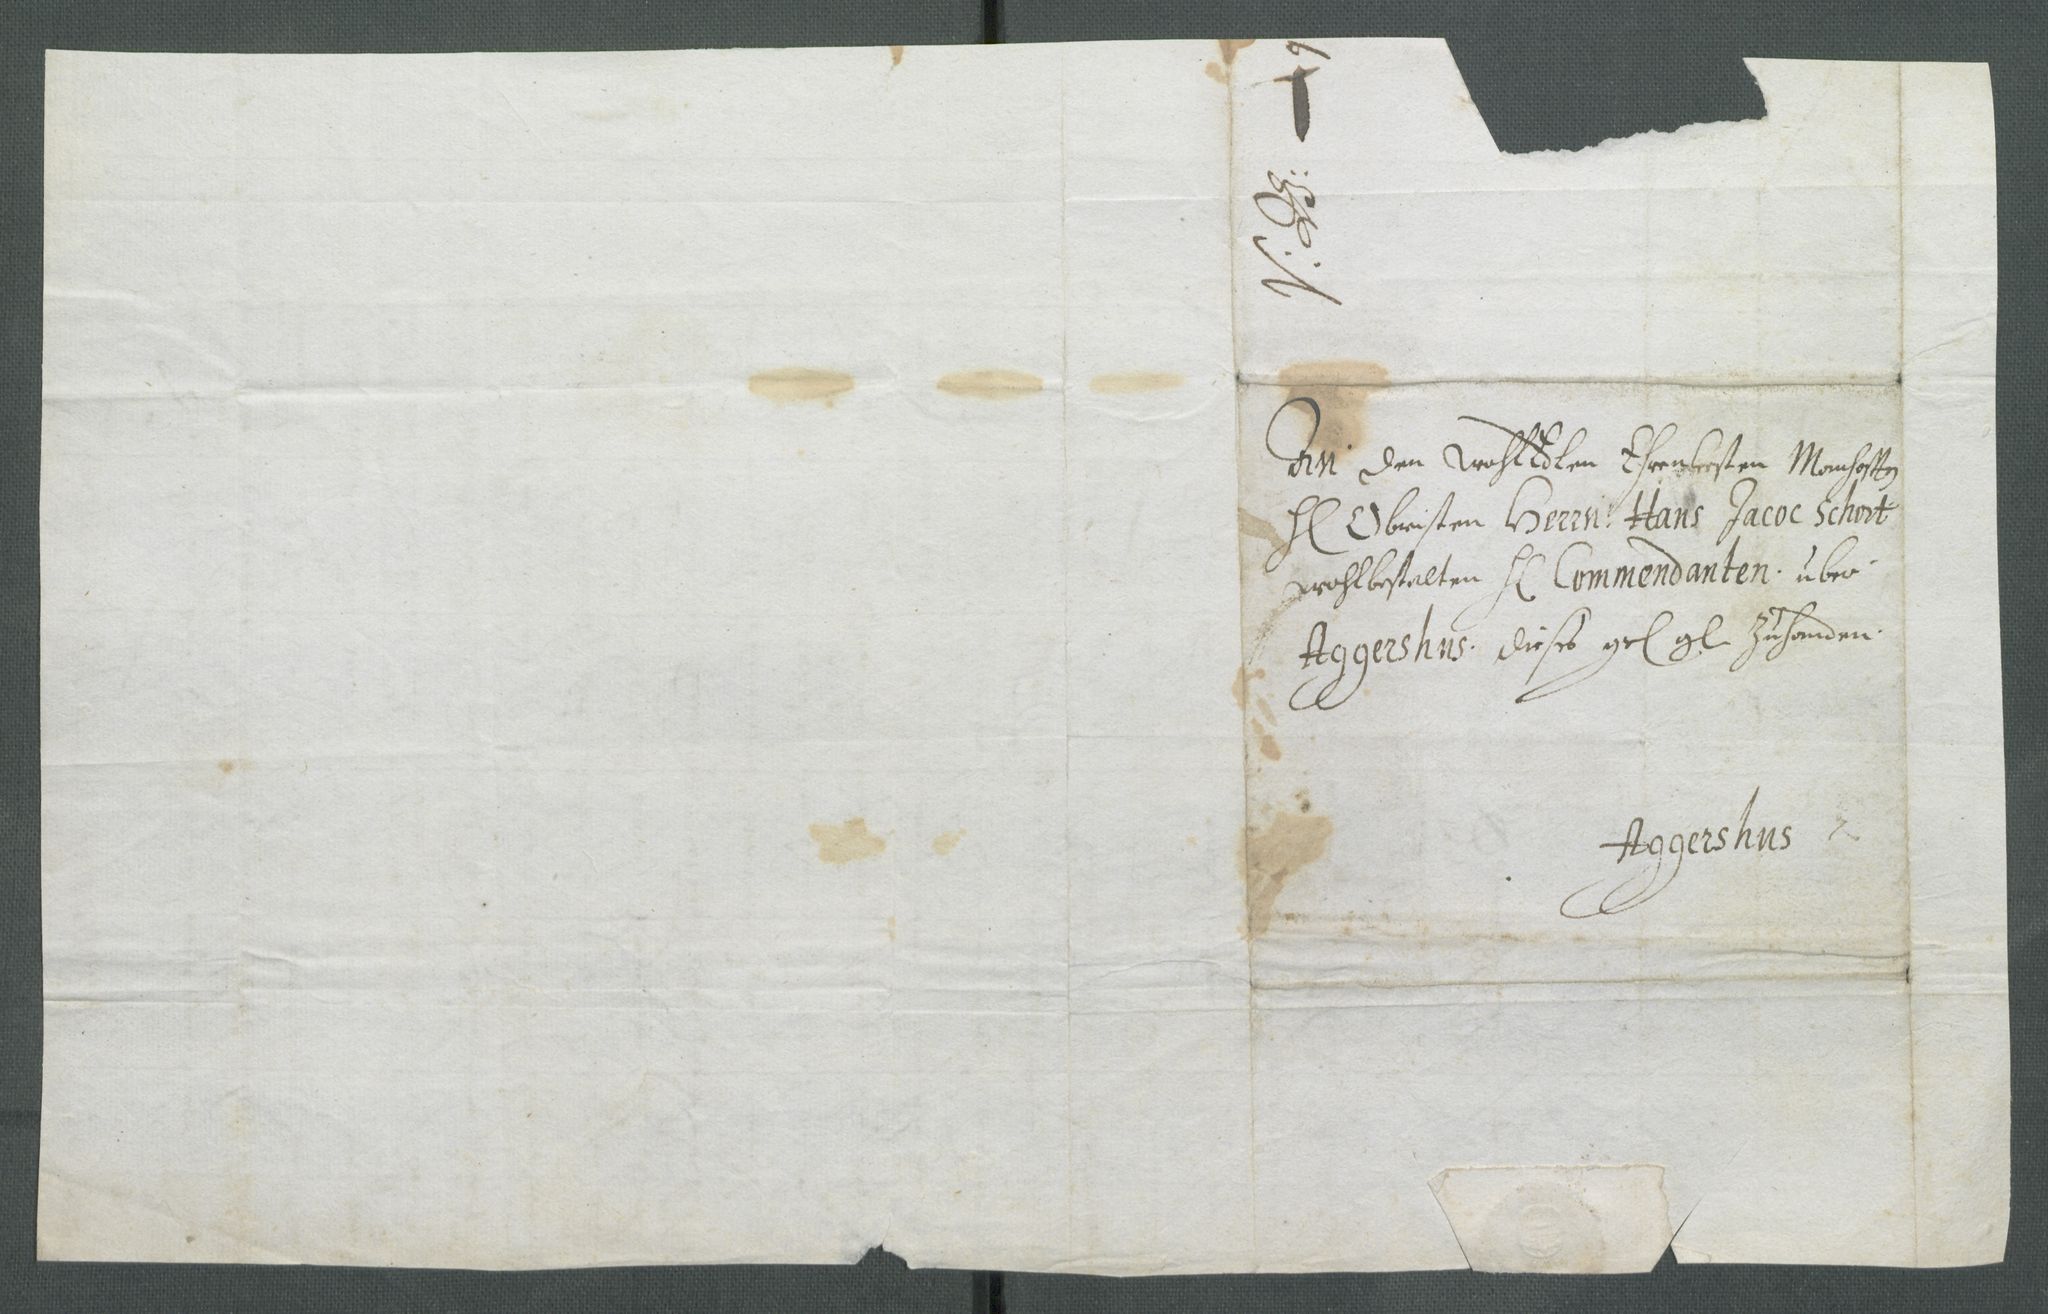 An den WohlEdlen Ehrenvesten Manhafften
H Obristen Herrn Hans Jacoc Schort
wohlbestalten H Commendanten. uber
Aggershus. dieses zuhanden.
Aggershus